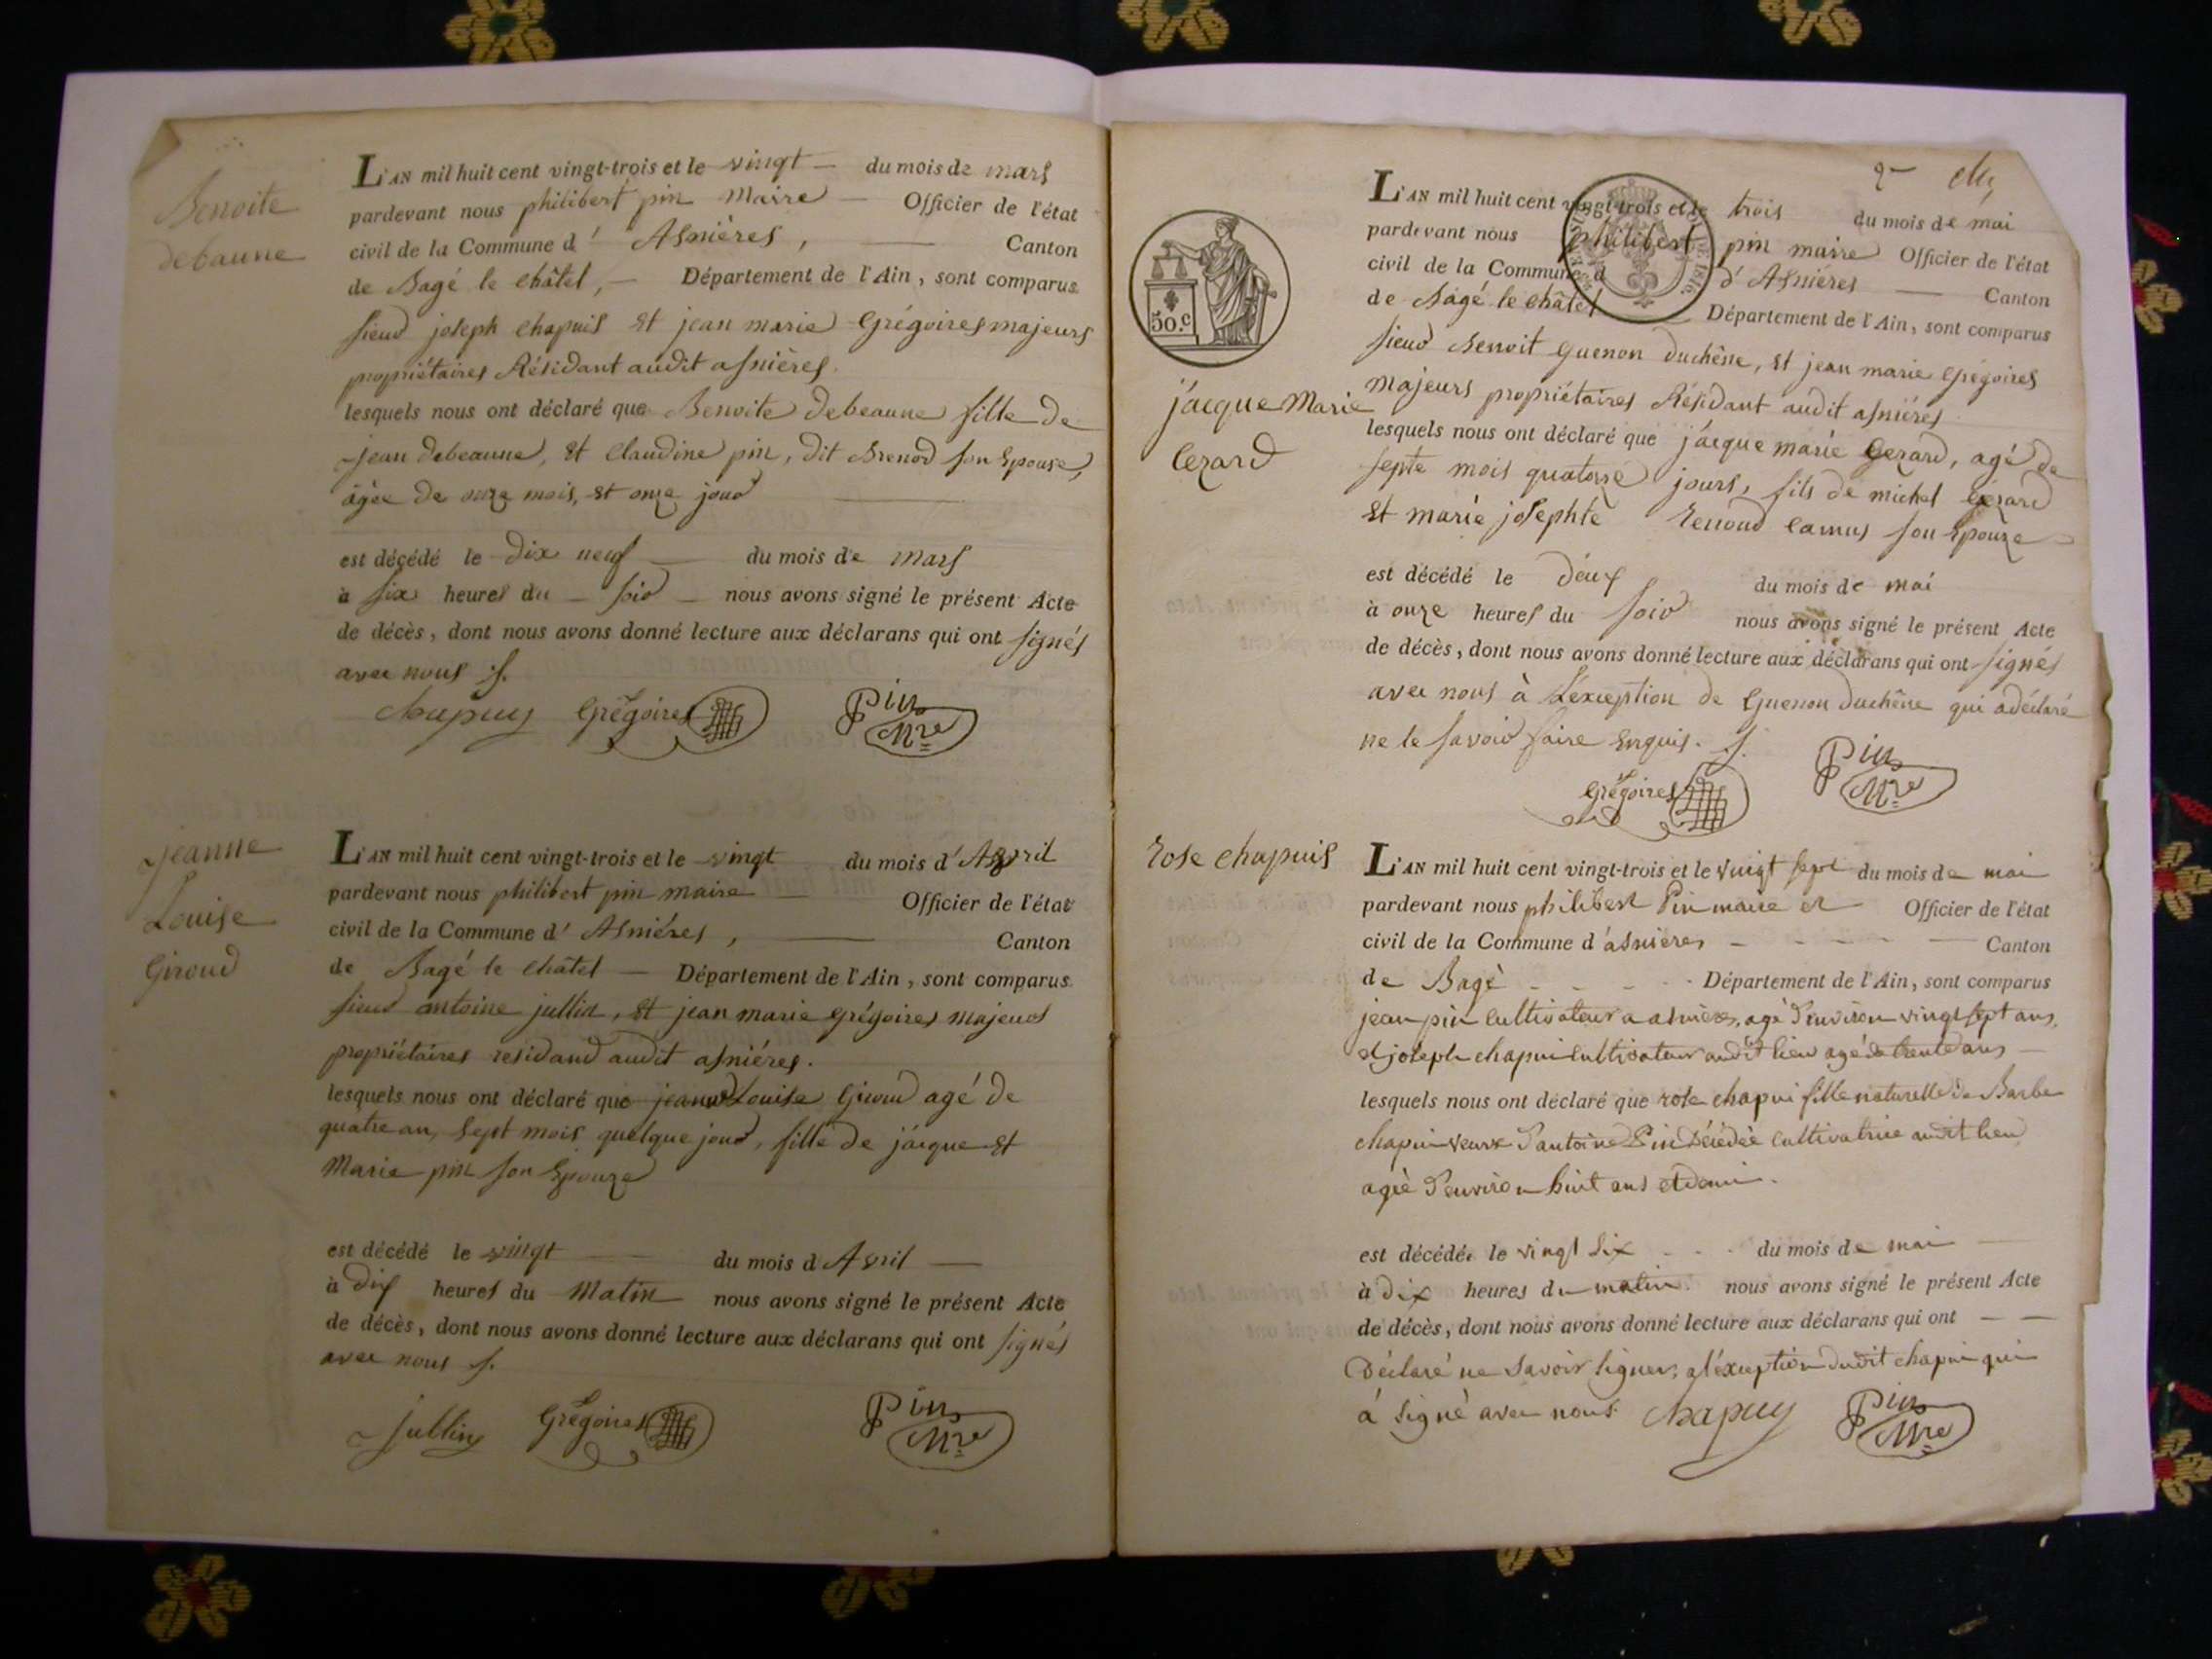 Benoite
debaune
L'AN mil huit cent vingt-trois et le vingt — du mois de mars
pardevant nous philibert pin Maire — Officier de l'état
civil de la Commune d' Asnières, — Canton
de Bagé le châtel, — Département de l'Ain, sont comparus
sieur joseph chapuis et jean marie Grégoires majeurs
propriétaires Résidant audit asnières.
lesquels nous ont déclaré que Benoite debeaune fille de
jean debeaune, et Claudine pin, dit Brenod son Epouse,
âgée de onze mois, et onze jour —
est décédé le dix neuf — du mois de mars
à six heures du — soir — nous avons signé le présent Acte
de décès, dont nous avons donné lecture aux déclarans qui ont signés
avec nous
chapuy Grégoires Pin
Mre
jeanne
Louise
Giroud
L'AN mil huit cent vingt-trois et le vingt du mois d'Avril
pardevant nous philibert pin maire — Officier de l'état
civil de la Commune d' Asniéres, — Canton
de Bagé le châtel — Département de l'Ain, sont comparus
sieur antoine jullin, et jean marie grégoires majeurs
propriétaires residand audit asniéres.
lesquels nous ont déclaré que jeanne Louise Giroud agé de
quatre an, sept mois quelque jour, fille de jacque et
Marie pin son Epouze
est décédé le vingt — du mois d Avril —
à dix heures du Matin nous avons signé le présent Acte
de décès, dont nous avons donné lecture aux déclarans qui ont signés
avec nous
Jullin Grégoires Pin
Mre
50.c
jacque Marie
Gezard
L'AN mil huit cent vingt-trois et le trois du mois de mai
pardevant nous philibert pin maire Officier de l'état
civil de la Commune d d'Asniéres — Canton
de Bagé le châtel Département de l'Ain, sont comparus
sieur Benoit guenon duchêne, et jean marie grégoires
majeurs propriétaires Résidant audit asniéres
lesquels nous ont déclaré que jacque marie Gezard, agé de
septe mois quatorze jours, fils de michel Gezard
et marie josephte Renoud camus son Epouze
est décédé le deux du mois de mai
à onze heures du soir nous avons signé le présent Acte
de décès, dont nous avons donné lecture aux déclarans qui ont signés
avec nous à l'éxception de Guenon duchêne qui a déclaré
ne le savoir faire Enquis.
Grégoires Pin
Mre
rose chapuis
L'AN mil huit cent vingt-trois et le vingt sept du mois de mai
pardevant nous philibert Pin maire et Officier de l'état
civil de la Commune d'asnieres — Canton
de Bagé Département de l'Ain, sont comparus
jean pin cultivateur a asnières, agé d'environ vingt sept ans,
et joseph chapui cultivateur audit lieu agé de trente ans —
lesquels nous ont déclaré que rose chapui fille naturelle de Barbe
chapui veuve d'antoine Pin décédée cultivatrice audit lieu
agée d'environ huit ans et demi.
est décédée le vingt six du mois de mai —
à dix heures du matin. nous avons signé le présent Acte
de décès, dont nous avons donné lecture aux déclarans qui ont — —
Déclaré ne savoir signer, a l'éxception dudit chapui qui
a signé avec nous. chapuy Pin
Mre